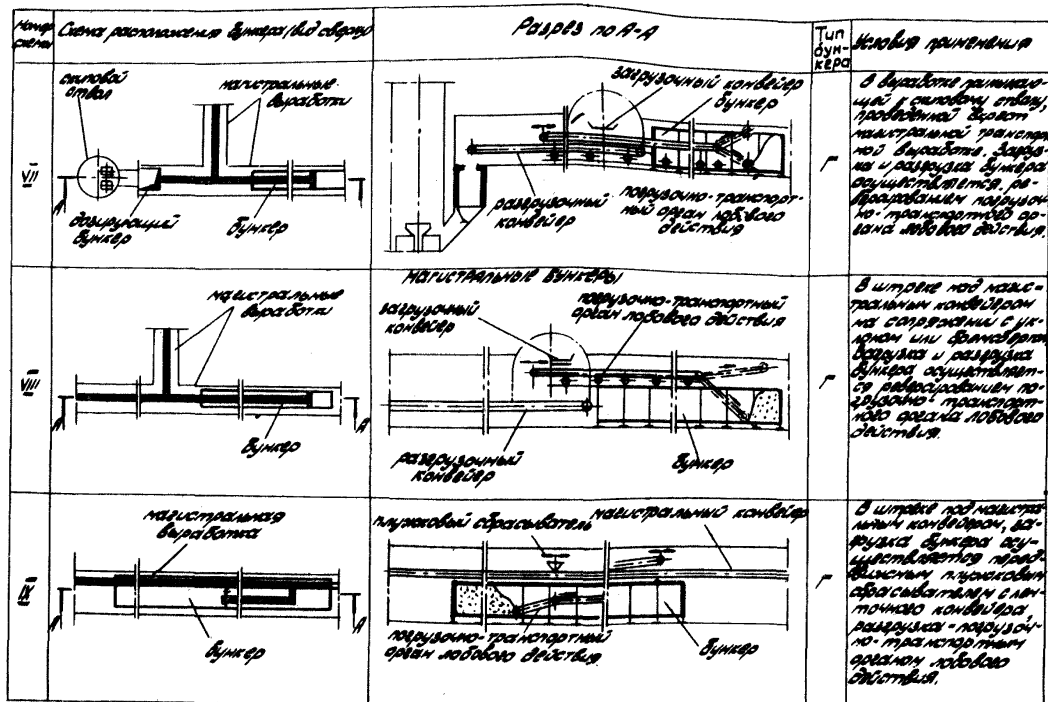 Номер
схемы
Схема расположения бункера (вид сверху)
Разрез по А-А
Тип
бун-
кера
Условия применения
VII
скиповой
ствол
магистральные
выработки
дозирующий
бункер
бункер
А
А
загрузочный конвейер
бункер
разгрузочный
конвейер
погрузочно-транспорт-
ный орган лобового
действия
Г
В выработке примыкаю-
щей к скиповому стволу,
проведенной
магистральной транспорт-
ной выработке. Загруз-
ка и разгрузка бункера
осуществляется ре-
версированием погрузоч-
но-транспортного ор-
гана лобового действия.
магистральные бункеры
VIII
магистральные
выработки
бункер
А
А
загрузочный
конвейер
погрузочно-транспортный
орган лобового действия
разгрузочный
конвейер
бункер
Г
В штреке над магис-
тральным конвейером
на сопряжении с ук-
лоном или бремсбергом.
Загрузка и разгрузка
бункера осуществляет-
ся реверсированием по-
грузочно-транспорт-
ного органа лобового
действия.
IX
магистральная
выработка
бункер
А
А
плужковый сбрасыватель
магистральный конвейер
погрузочно-транспортный
орган лобового действия
бункер
Г
В штреке под магистра-
льным конвейером, за-
грузка бункера осу-
ществляется перед-
вижным плужковым
сбрасывателем с лен-
точного конвейера,
разгрузка-погрузоч-
но-транспортным
органом лобового
действия.